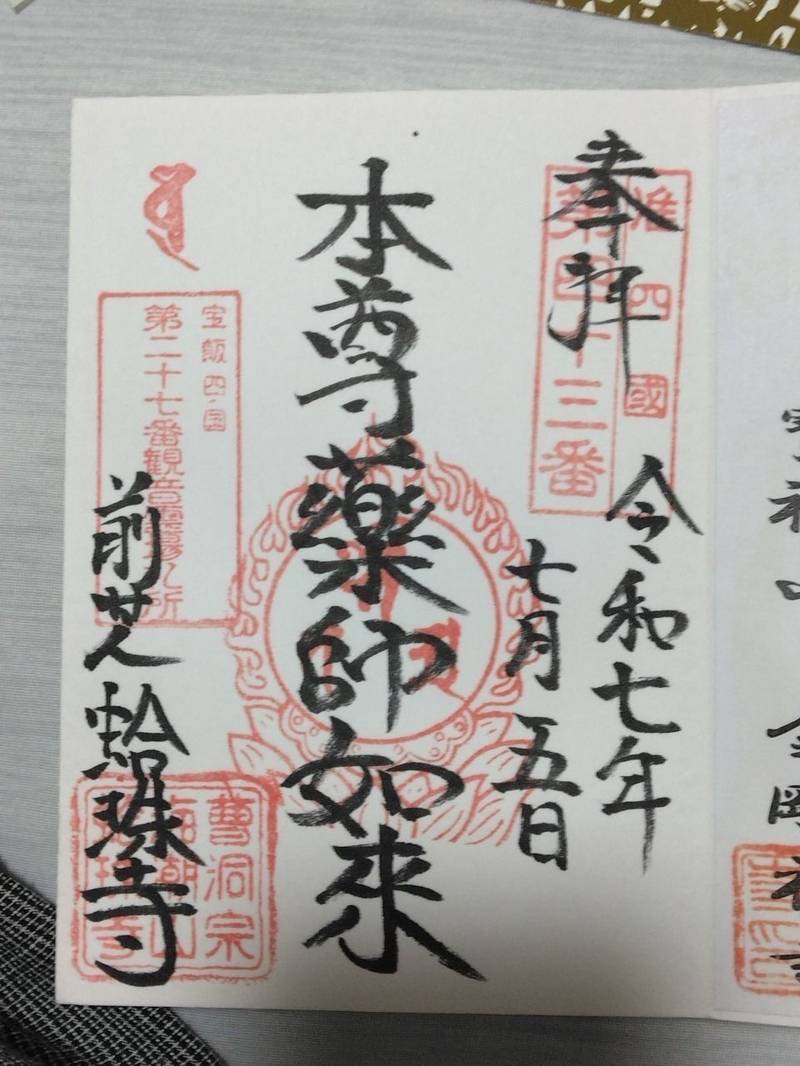 奉拝
准四國
第四十三番
令和七年
七月五日
本尊薬師如来
宝飯四国
第二十七番観音霊場
前芝
蛤珠寺
曹洞宗